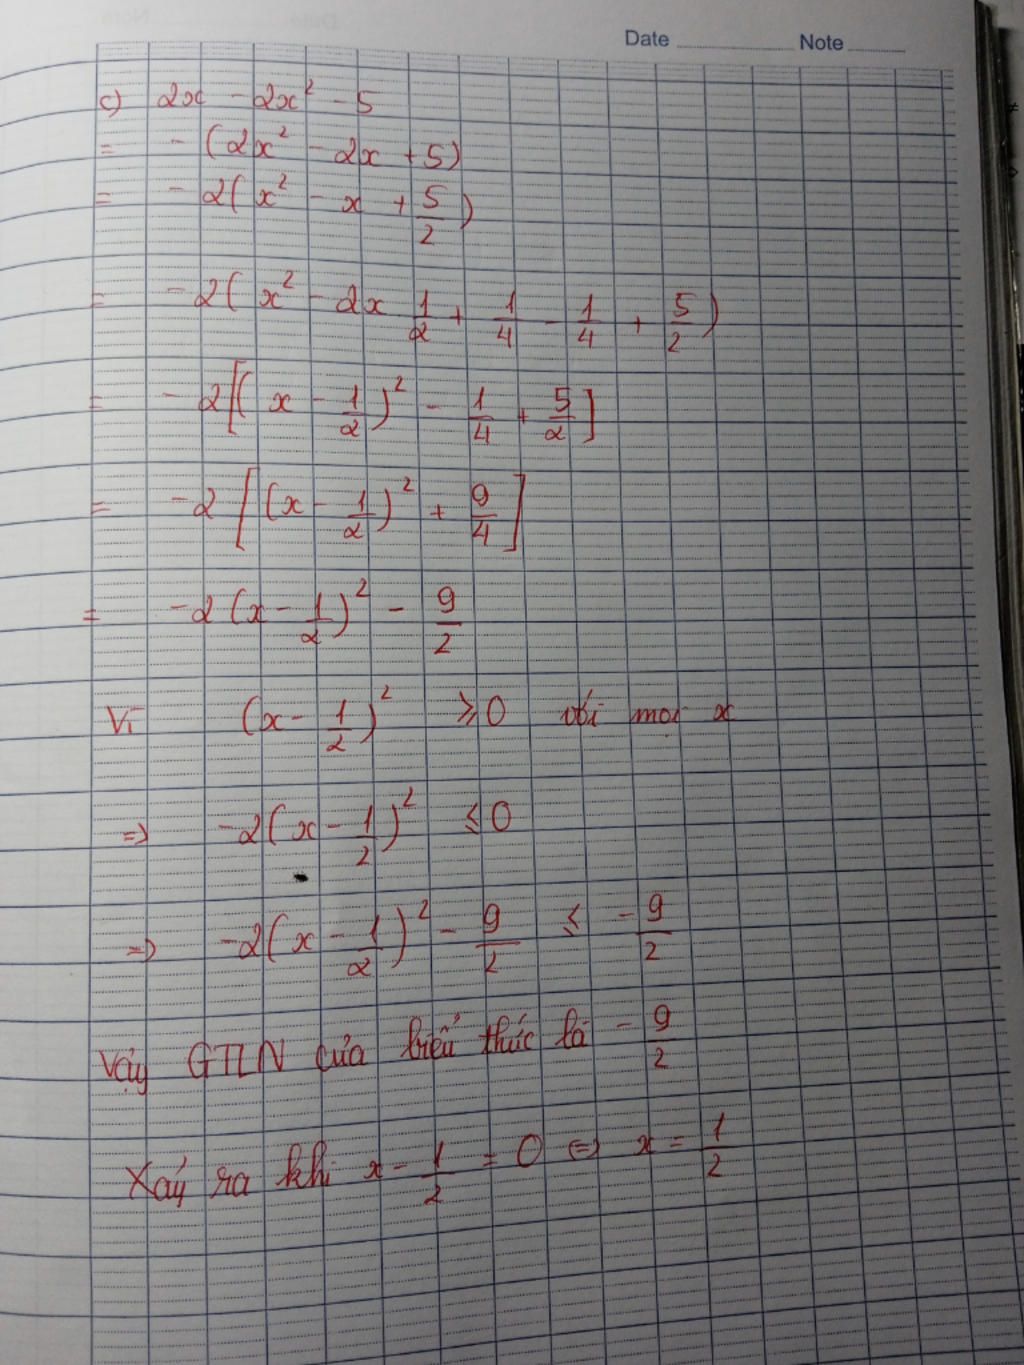 Date Note
c) 2x - 2x² - 5
= - (2x² - 2x + 5)
= - 2(x² - x + 5/2)
= - 2(x² - 2x 1/2 + 1/4 - 1/4 + 5/2)
= - 2[(x - 1/2)² - 1/4 + 5/2]
= - 2[(x - 1/2)² + 9/4]
= - 2(x - 1/2)² - 9/2
Vì (x - 1/2)² ≥ 0 với mọi x
=> -2(x - 1/2)² ≤ 0
=> -2(x - 1/2)² - 9/2 ≤ -9/2
Vậy GTLN của biểu thức là -9/2
Xảy ra khi x - 1/2 = 0 <=> x = 1/2